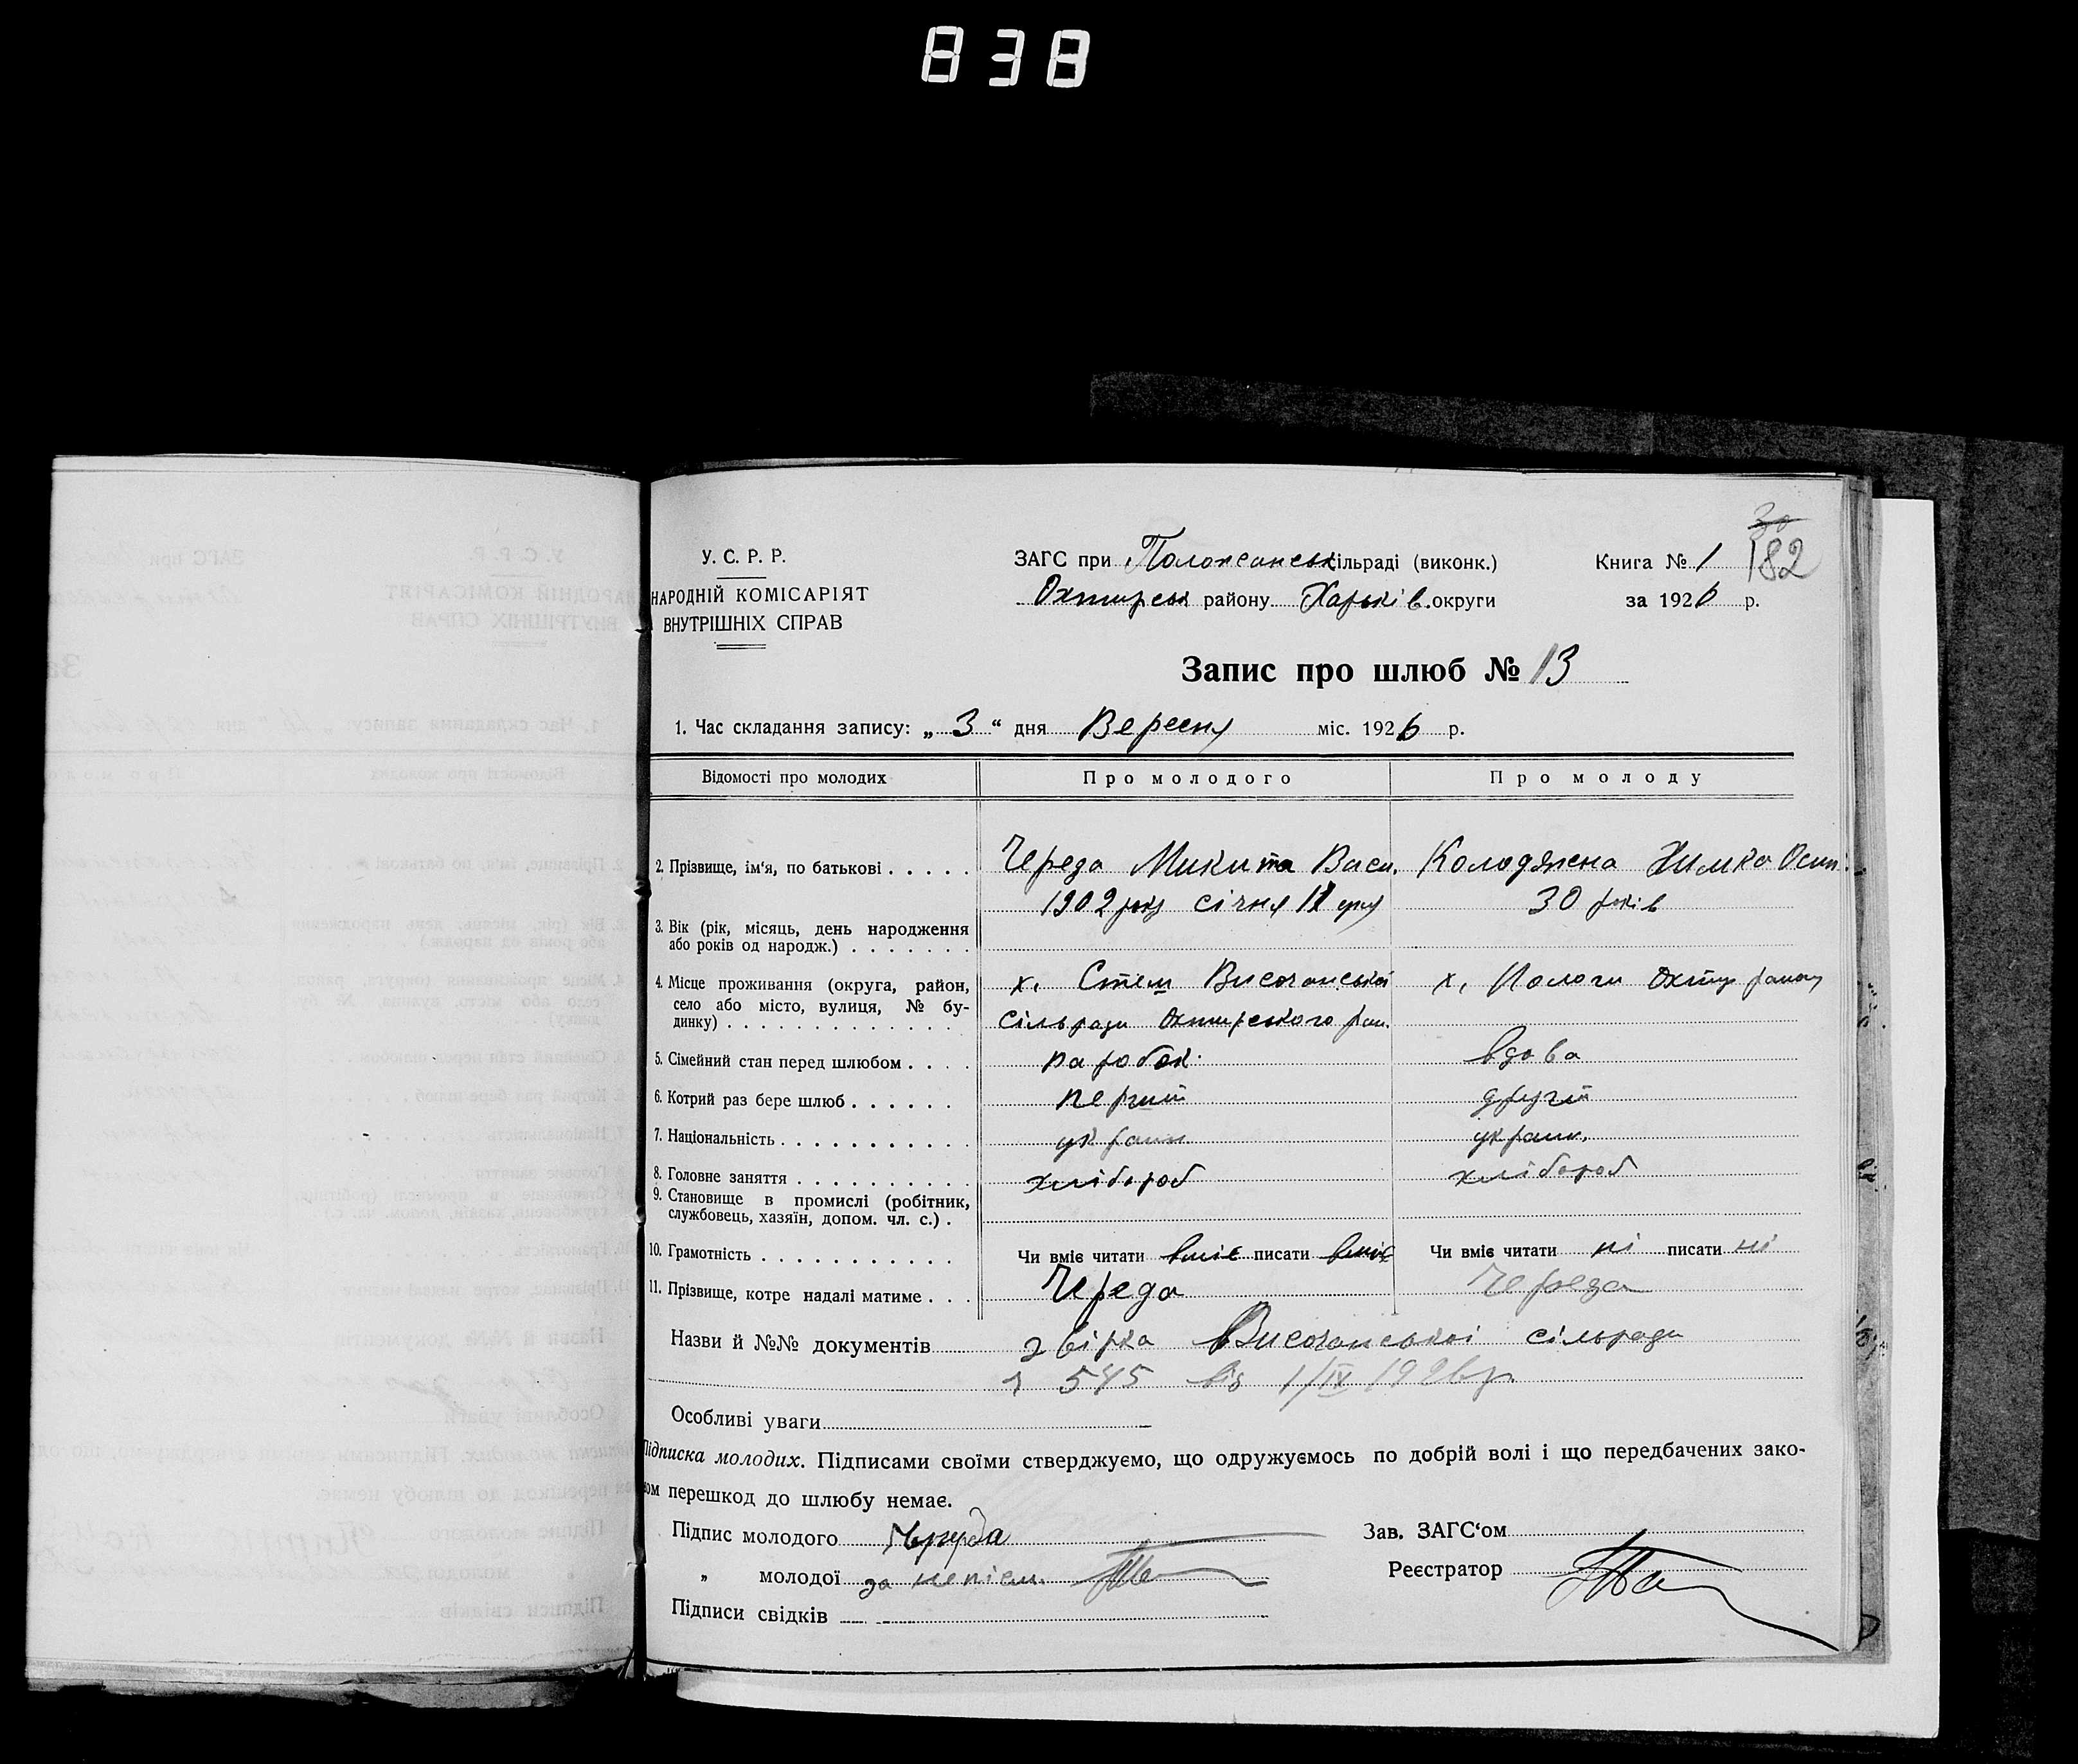 838
30
182
У. С. Р. Р.
НАРОДНІЙ КОМІСАРІЯТ
ВНУТРІШНІХ СПРАВ
ЗАГС при Положанськ сільраді (виконк.)
Охтирськ району Харьків. округи
Книга № 1
за 1926 р.
Запис про шлюб № 13
1. Час складання запису: „ 3 “ дня Вересня міс. 1926 р.
Відомості про молодих Про молодого Про молоду
2. Прізвище, ім'я, по батькові . . . . . Череда Микита Васи. Колодяжна Химка Осип.
1902 року січня 11 дня 30 років
3. Вік (рік, місяць, день народження
або років од народж.) . . . . . . .
4. Місце проживання (округа, район, х. Стеш Височанської х. Пологи Охтир району
село або місто, вулиця, № бу- сільради Охтирського рай.
динку) . . . . . . . . . . . . . .
5. Сімейний стан перед шлюбом . . . . паробок вдова
6. Котрий раз бере шлюб . . . . . . перший другий
7. Національність . . . . . . . . . . . украин. украин.
8. Головне заняття . . . . . . . . . . хлібороб хлібороб
9. Становище в промислі (робітник,
службовець, хазяїн, допом. чл. с.) .
10. Грамотність . . . . . . . . . . . Чи вміє читати вміє писати вміє Чи вміє читати ні писати ні
11. Прізвище, котре надалі матиме . . . Череда Череда
Назви й №№ документів звірка Височанської сільради
545 від 1/IX 1926 р.
Особливі уваги
Підписка молодих. Підписами своїми стверджуємо, що одружуємось по добрій волі і що передбачених зако-
ном перешкод до шлюбу немає.
Підпис молодого Череда Зав. ЗАГС'ом
„ молодої за неписм. Реєстратор
Підписи свідків